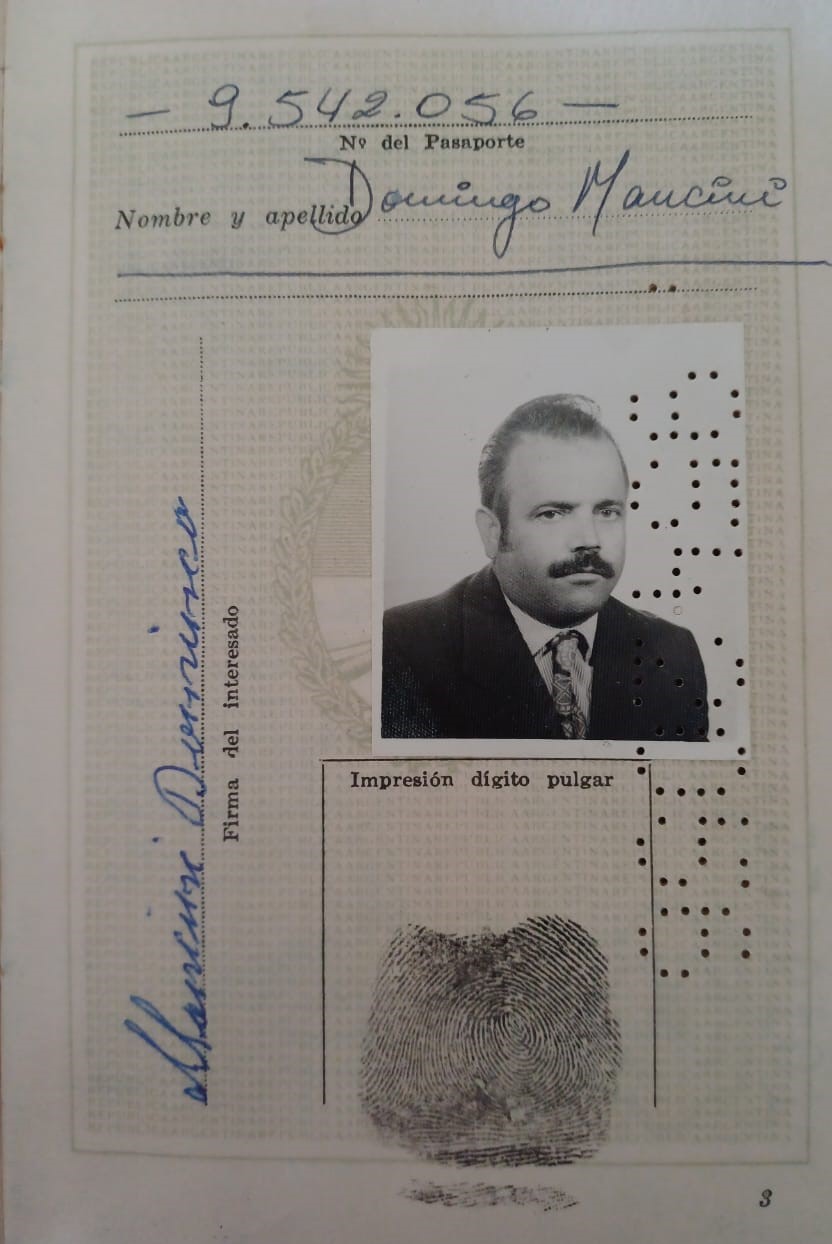 — 9.542.056 —
Nº del Pasaporte
Nombre y apellido Domingo Mancini
Firma del interesado
Mancini Domingo
Impresión dígito pulgar
3